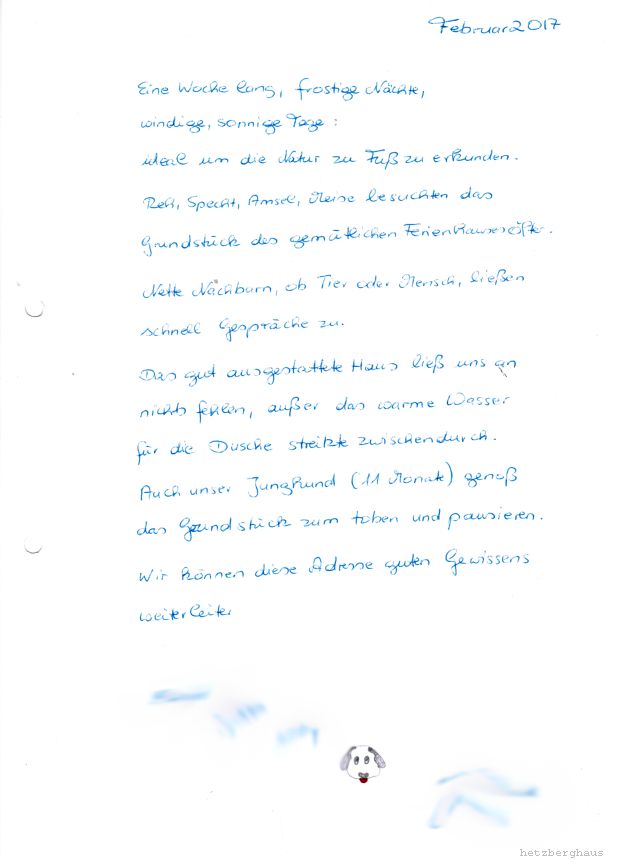 Februar 2017
Eine Woche lang, frostige Nächte,
windige, sonnige Tage:
ideal um die Natur zu Fuß zu erkunden.
Reh, Specht, Amsel, Meise besuchten das
Grundstück des gemütlichen Ferienhauses öfter.
Nette Nachburn, ob Tier oder Mensch, ließen
schnell Gespräche zu.
Das gut ausgestattete Haus ließ uns an
nichts fehlen, außer das warme Wasser
für die Dusche streikte zwischendurch.
Auch unser Junghund (11 Monate) genoß
das Grundstück zum toben und pausieren.
Wir können diese Adresse guten Gewissens
weiterleiten
hetzberghaus